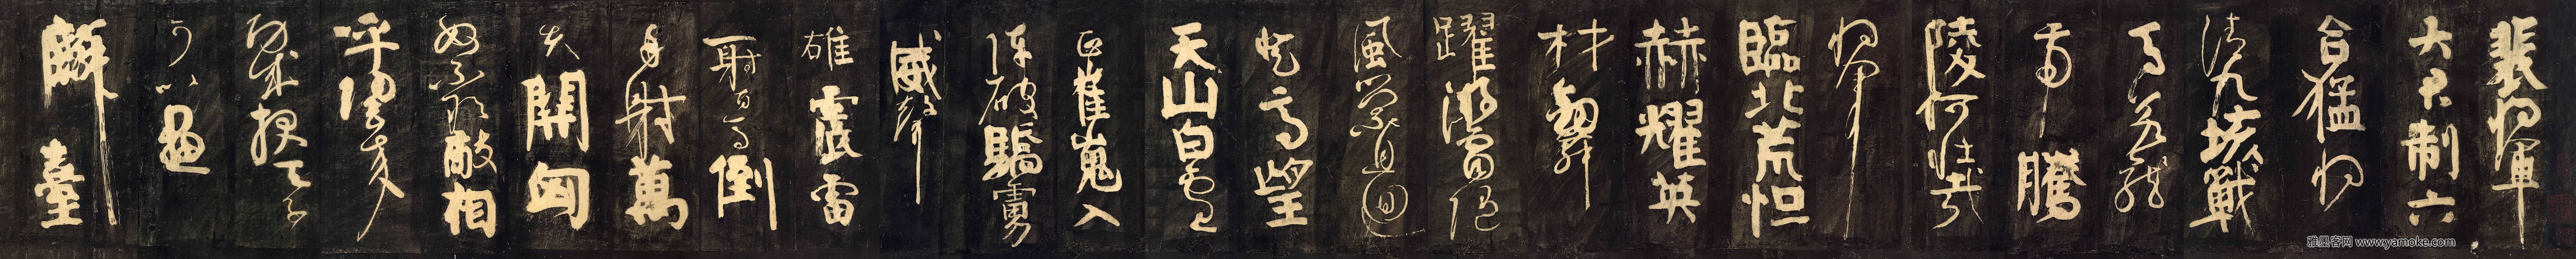 裴將軍
大君制六
合猛將
清九垓戰
馬若龍
虎騰
陵何壯哉
將軍
臨北荒恒
赫耀英
材劍舞
躍游電隨
風縈且迴
登高望
天山白雲
正崔嵬入
陣破驕虜
威聲
雄震雷
一射百馬倒
再射萬
夫開匈
奴不敢敵相
呼歸去來
功成報天子
可以畫
麟臺
雅墨客网 www.yamoke.com